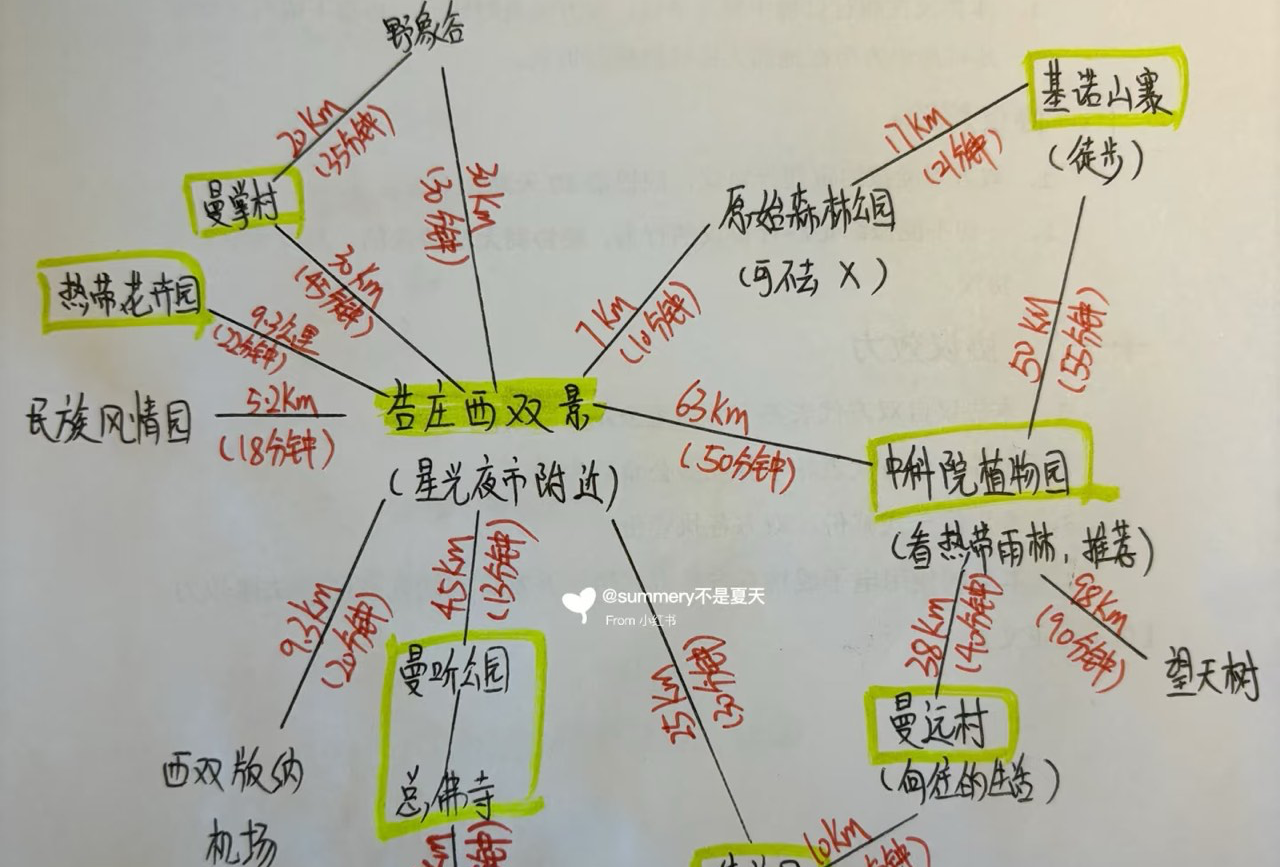 野象谷
20Km
(35分钟)
30Km
(30分钟)
曼掌村
30Km
(45分钟)
热带花卉园
9.3公里
(22分钟)
民族风情园
5.2Km
(18分钟)
告庄西双景
(星光夜市附近)
基诺山寨
(徒步)
17Km
(21分钟)
原始森林公园
(可不去 X)
7Km
(10分钟)
50KM
(55分钟)
63Km
(50分钟)
中科院植物园
(看热带雨林,推荐)
38Km
(40分钟)
(90分钟)
望天树
曼远村
(向往的生活)
9.3Km
(20分钟)
西双版纳
机场
4.5Km
(13分钟)
曼听公园
总佛寺
25Km
(30分钟)
10Km
@summery不是夏天
From 小红书